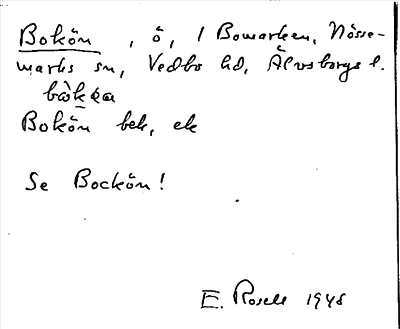 Bokön, ö, i Bowarken, Nösse-
marks sn, Vedbo hd, Älvsborgs l.
Bokön bek, ek
Se Bockön!
E. Rosell 1948